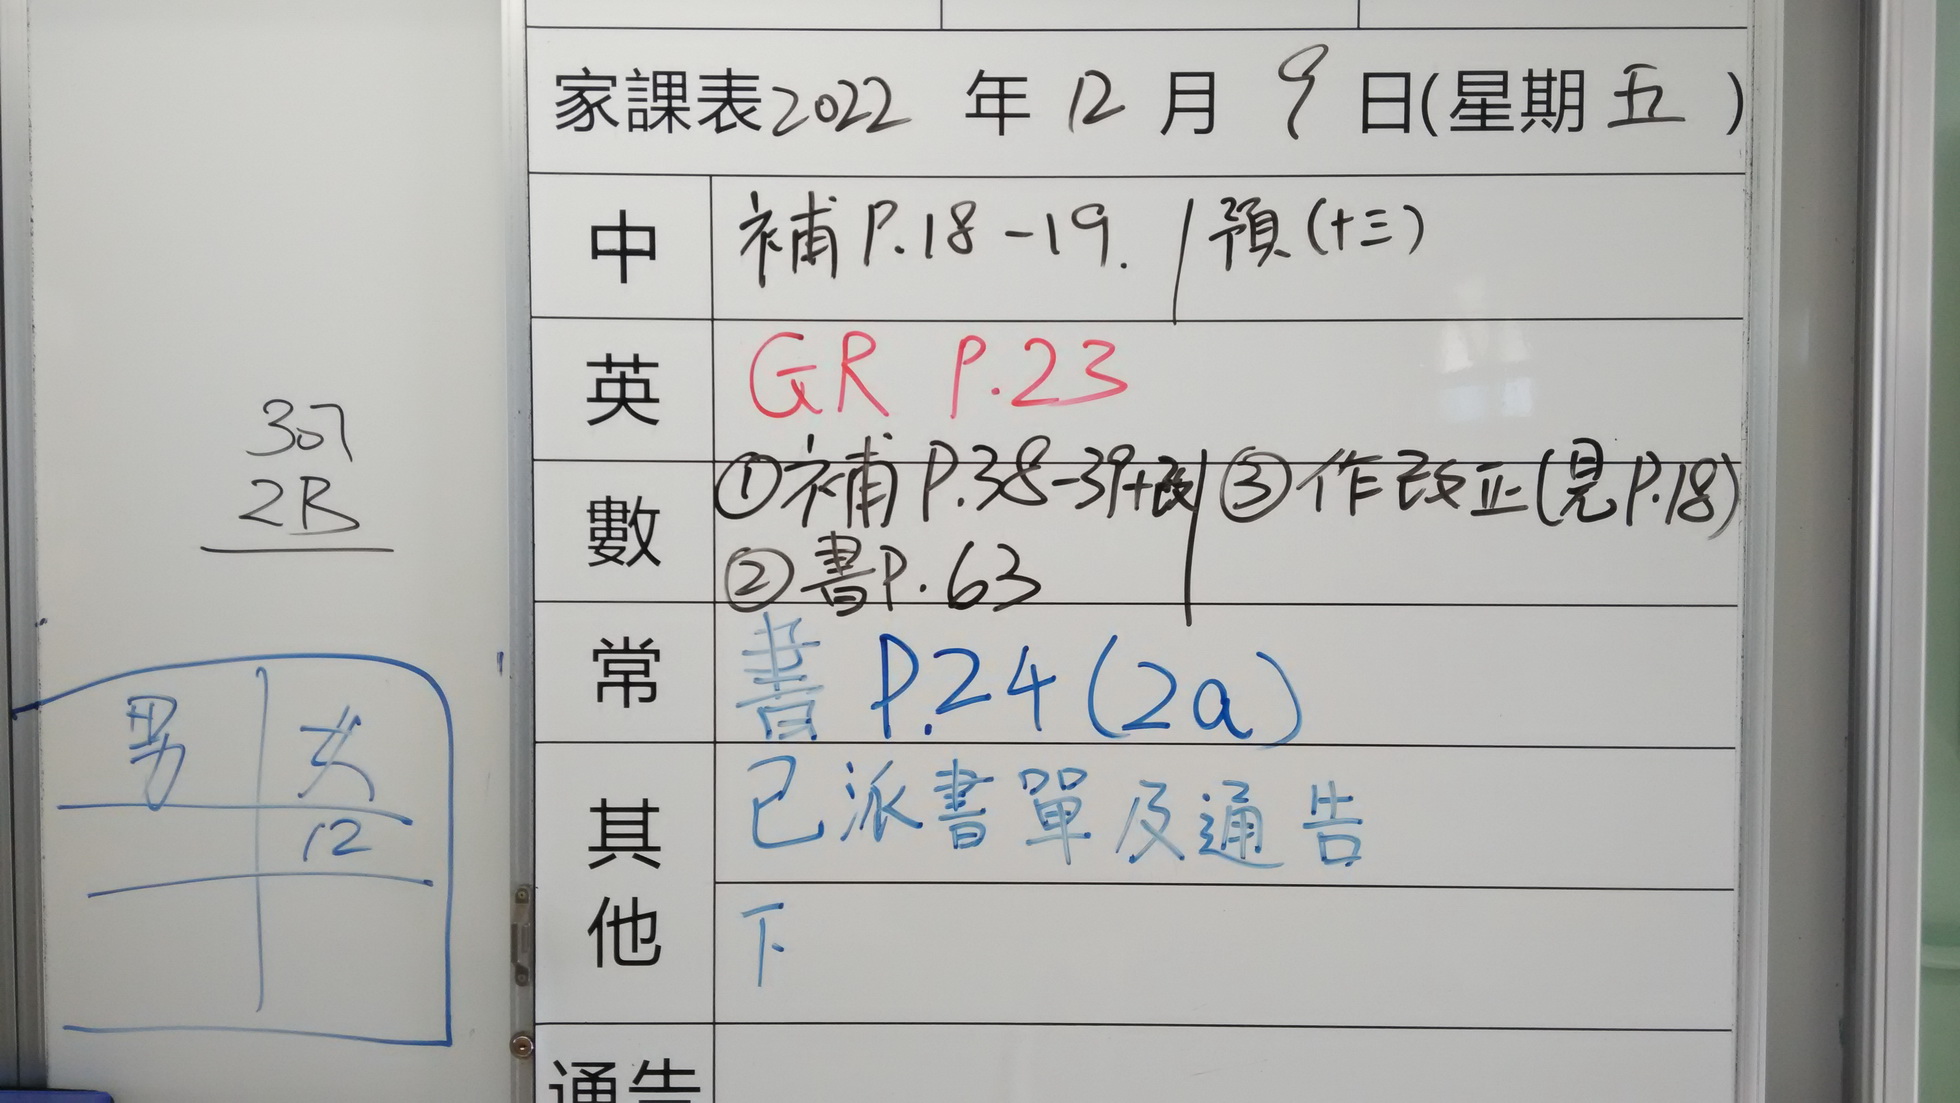 家課表2022 年 12 月 9 日(星期 五 )
中 補 P.18-19. / 預(十三)
英 GR P.23
數 ①補 P.38-39+改 ③作改正(見P.18)
②書P.63
常 書 P.24(2a)
其他 已派書單及通告
下
通告
307
2B
男 女
12